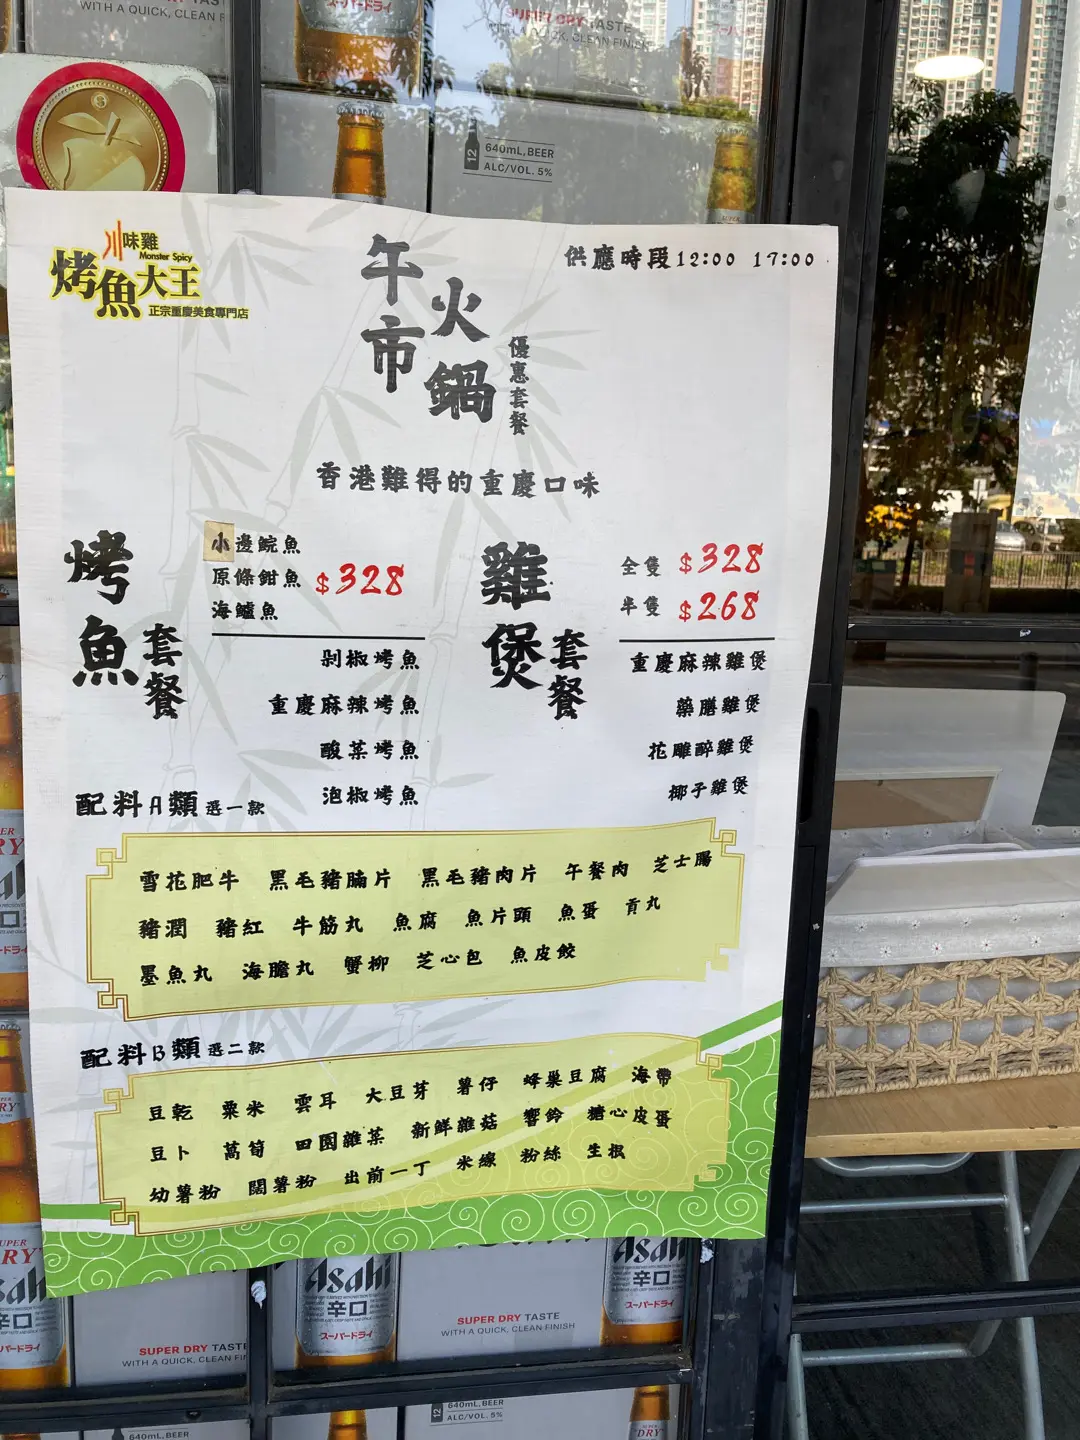 WITH A QUICK, CLEAN F
スーパードライ
SUPER DRY TASTE
CLEAN FINISH
12
640mL, BEER
ALC/VOL. 5%
川味雞
Monster Spicy
烤魚大王
正宗重慶美食專門店
供應時段12:00 17:00
午市
火鍋
優惠套餐
香港難得的重慶口味
烤魚
套餐
小邊鯇魚
原條鉗魚
海鱸魚
$328
剁椒烤魚
重慶麻辣烤魚
酸菜烤魚
泡椒烤魚
雞煲
套餐
全隻 $328
半隻 $268
重慶麻辣雞煲
藥膳雞煲
花雕醉雞煲
椰子雞煲
配料A類 選一款
雪花肥牛 黑毛豬腩片 黑毛豬肉片 午餐肉 芝士腸
豬潤 豬紅 牛筋丸 魚腐 魚片頭 魚蛋 貢丸
墨魚丸 海膽丸 蟹柳 芝心包 魚皮餃
配料B類 選二款
豆乾 粟米 雲耳 大豆芽 薯仔 蜂巢豆腐 海帶
豆卜 萵筍 田園雜菜 新鮮雜菇 響鈴 糖心皮蛋
幼薯粉 闊薯粉 出前一丁 米線 粉絲 生根
Asahi
辛口
スーパードライ
SUPER DRY TASTE
WITH A QUICK, CLEAN FINISH
Asahi
辛口
スーパードライ
SUPER DRY TAST
WITH A QUICK, CLEAN FI
640mL, BEER
12
640mL, BEER
ALC/VOL. 5%
DRY